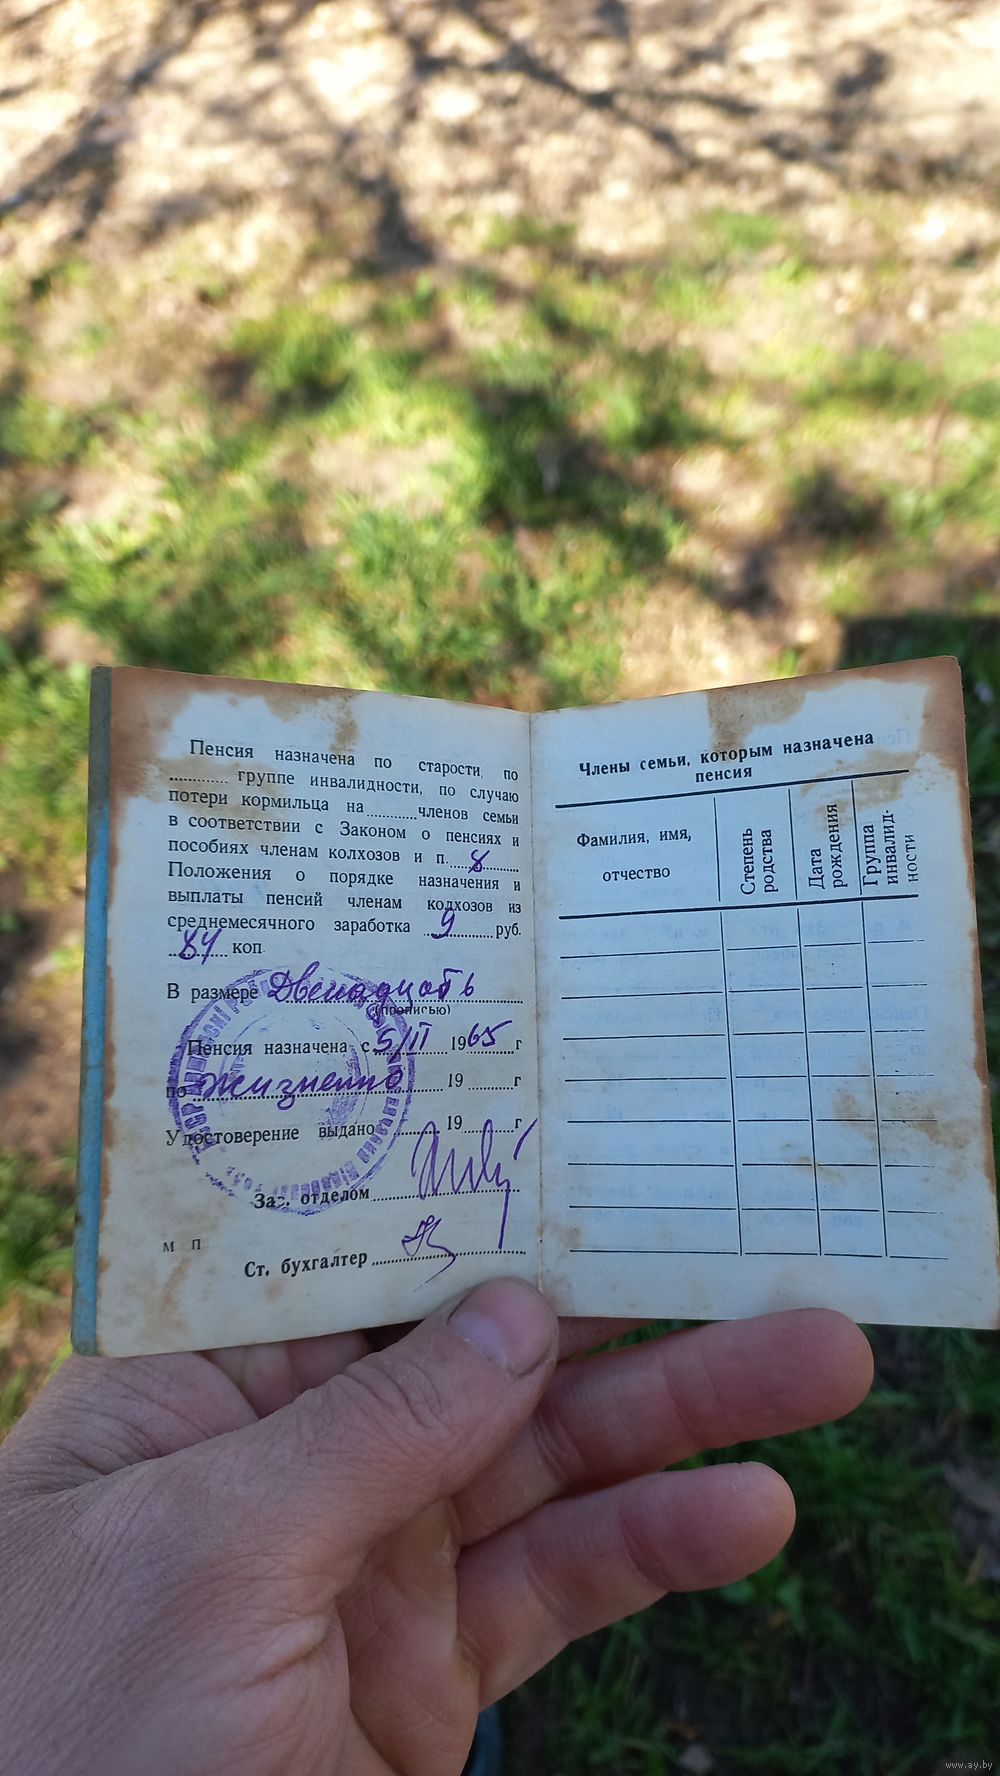 Пенсия назначена по старости, по
............ группе инвалидности, по случаю
потери кормильца на............членов семьи
в соответствии с Законом о пенсиях и
пособиях членам колхозов и п. 8
Положения о порядке назначения и
выплаты пенсий членам колхозов из
среднемесячного заработка 9 руб.
84 коп.
В размере Двенадцать
(прописью)
Пенсия назначена с 5/II 1965 г
по жизненно 19 г
Удостоверение выдано 19 г
Зав. отделом
м п
Ст. бухгалтер
Члены семьи, которым назначена
пенсия
Фамилия, имя,
отчество
Степень
родства
Дата
рождения
Группа
инвалид-
ности
www.ay.by